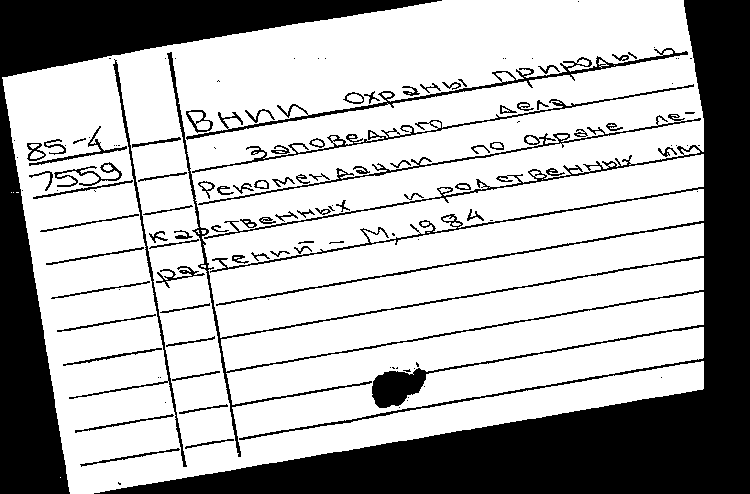 ВНИИ охраны природы и
85-4 заповедного дела.
7559 Рекомендации по охране ле-
карственных и родственных им
растений. – М., 1984.